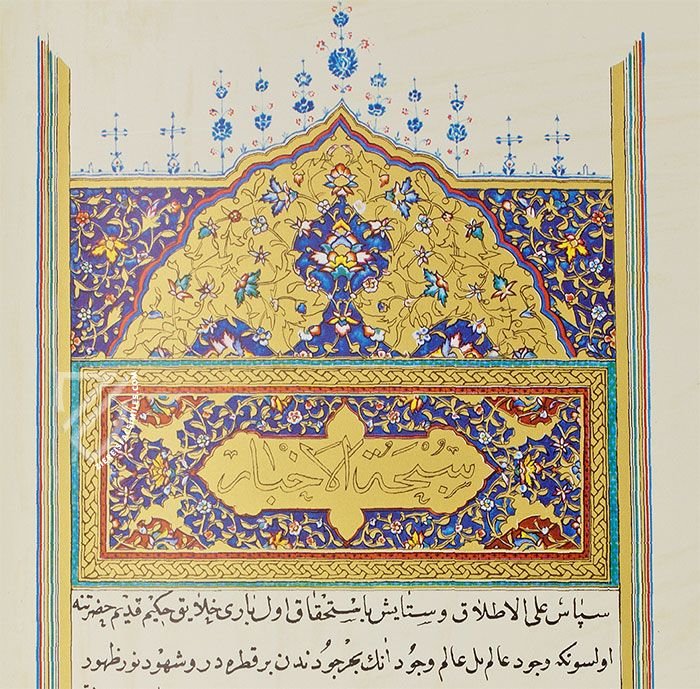 سبحة الاخبار
سپاس على الاطلاق و ستايش باستحقاق اول بارى خلايق حكيم قديم حضرتنه
اولسونكه وجود عالم بل عالم وجود انك بحر جودندن بر قطره در و شهود نور ظهور